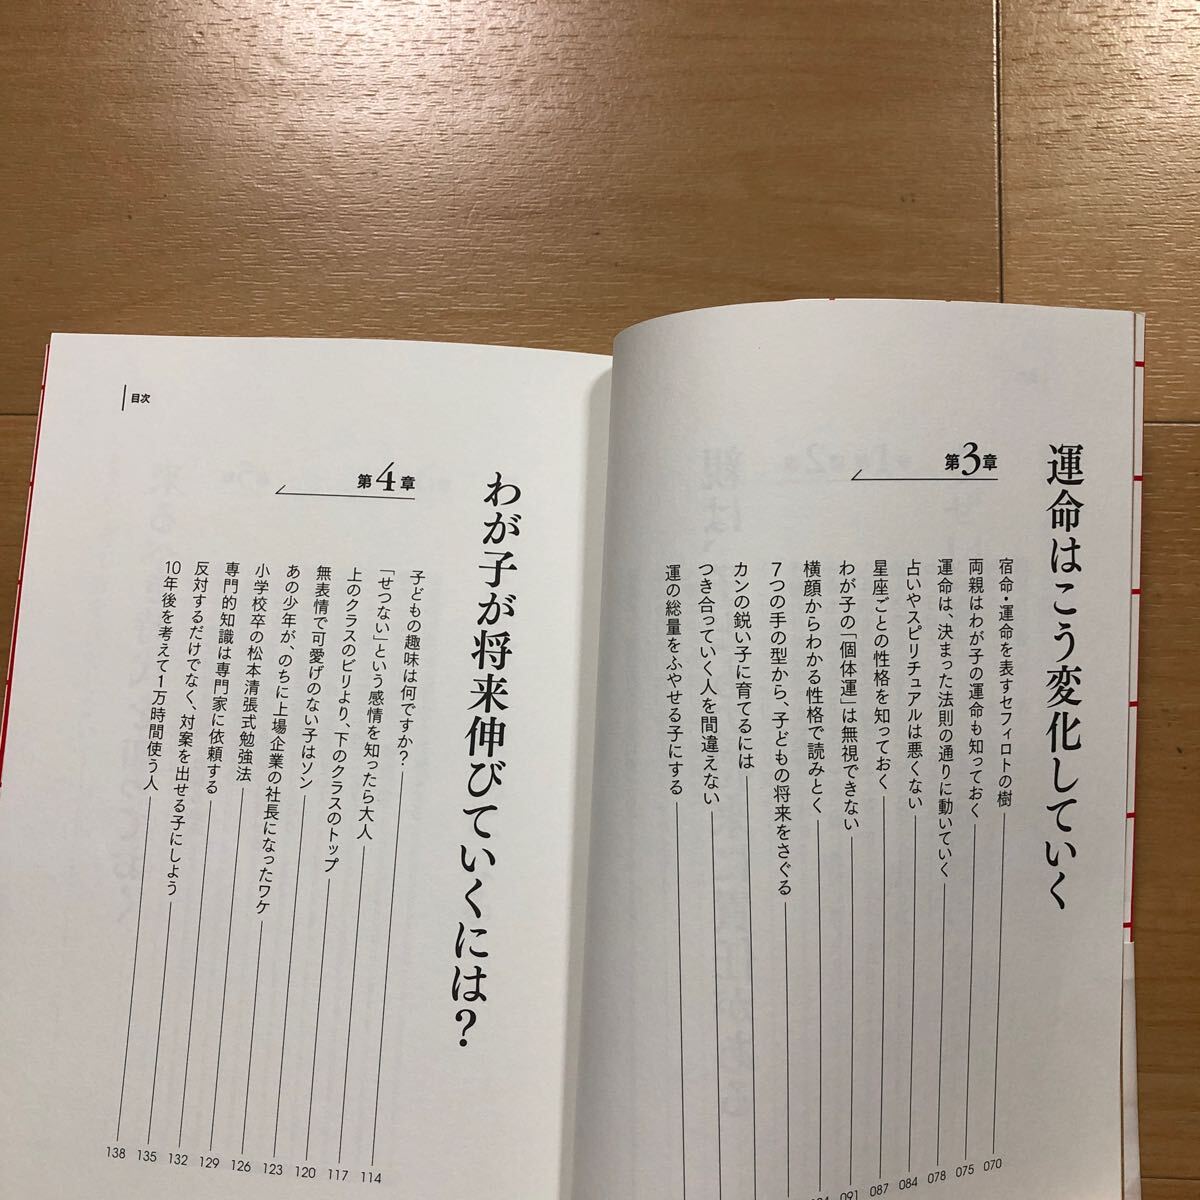 第3章
運命はこう変化していく
宿命・運命を表すセフィロトの樹 070
両親はわが子の運命も知っておく 075
運命は、決まった法則の通りに動いていく 078
占いやスピリチュアルは悪くない 084
星座ごとの性格を知っておく 087
わが子の「個体運」は無視できない 091
横顔からわかる性格で読みとく
7つの手の型から、子どもの将来をさぐる
カンの鋭い子に育てるには
つき合っていく人を間違えない
運の総量をふやせる子にする
第4章
わが子が将来伸びていくには?
子どもの趣味は何ですか? 114
「せつない」という感情を知ったら大人 117
上のクラスのビリより、下のクラスのトップ 120
無表情で可愛げのない子はソン 123
あの少年が、のちに上場企業の社長になったワケ 126
小学校卒の松本清張式勉強法 129
専門的知識は専門家に依頼する 132
反対するだけでなく、対案を出せる子にしよう 135
10年後を考えて1万時間使う人 138
目次